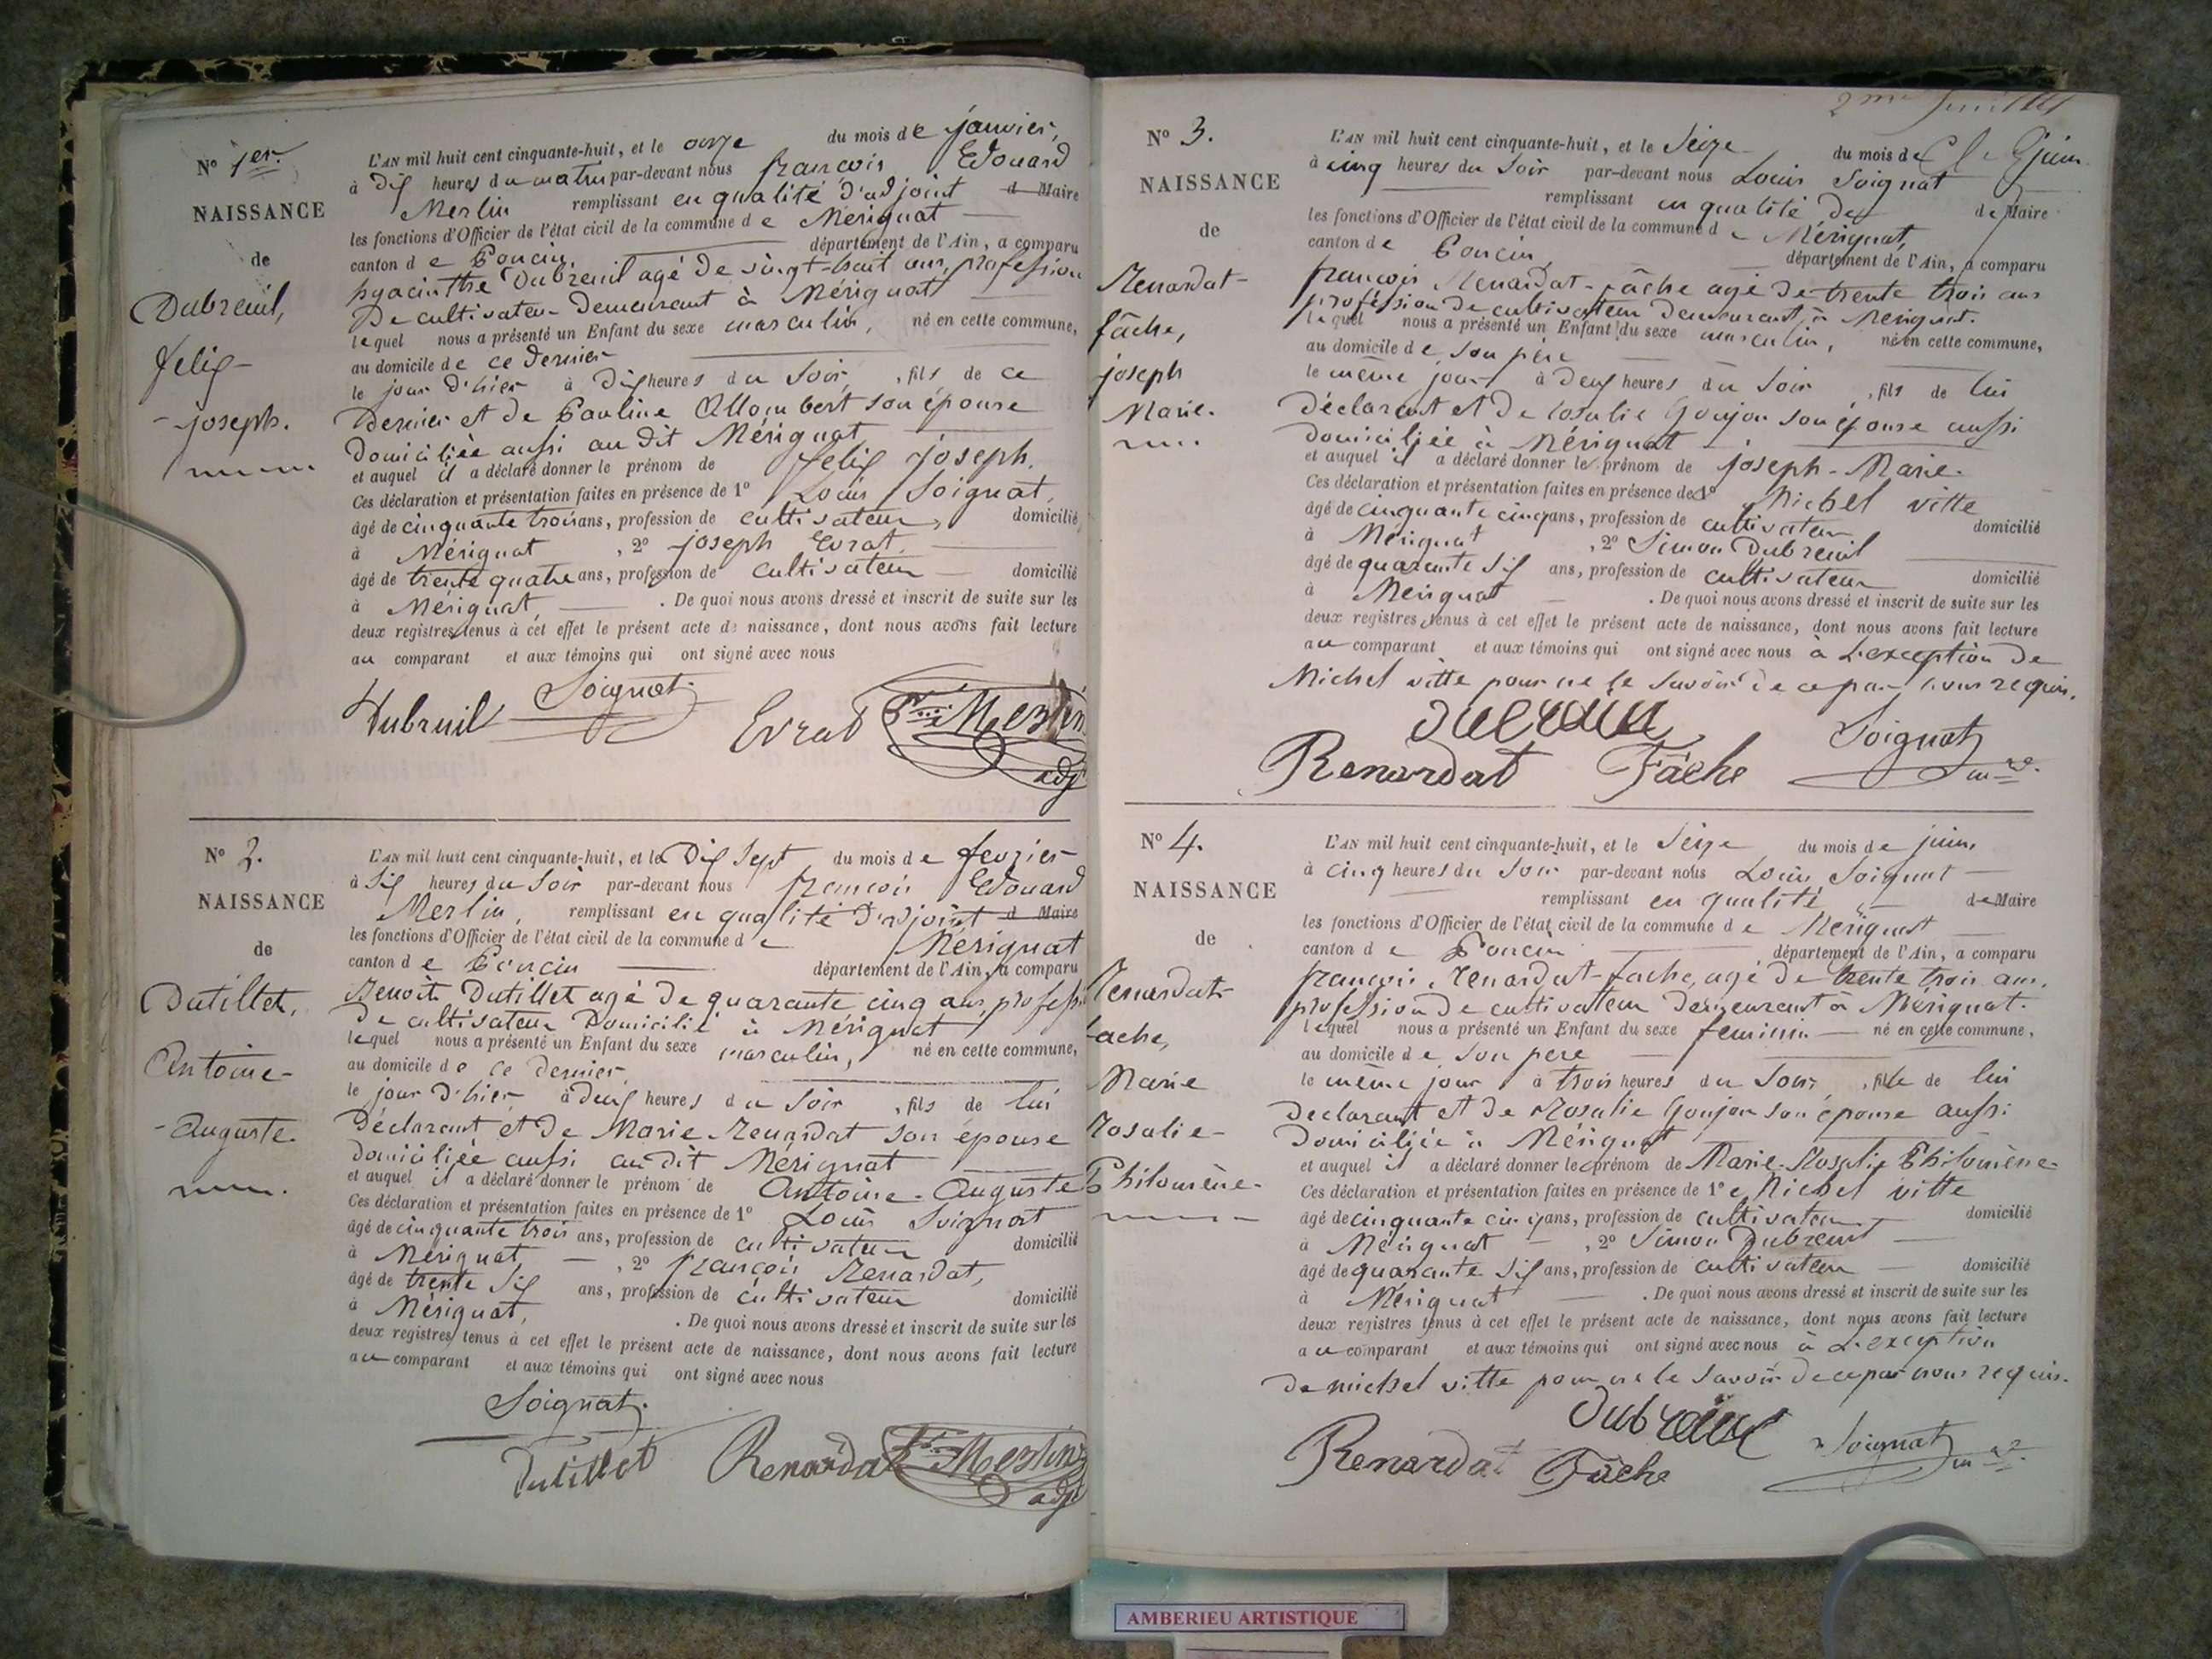 Nº 1er.
NAISSANCE
de
Dubreuil,
felix-
-joseph.
L'AN mil huit cent cinquante-huit, et le onze du mois de janvier,
à dix heures du matin par-devant nous françois Edouard
Merlin remplissant en qualité d'adjoint d Maire
les fonctions d'Officier de l'état civil de la commune de Mérignat
canton de Poncin, département de l'Ain, a comparu
hyacinthe Dubreuil agé de vingt-huit ans, profession
De cultivateur demeurant à Mérignat
lequel nous a présenté un Enfant du sexe masculin, né en cette commune,
au domicile de ce dernier
le jour d'hier à dix heures du soir, fils de ce
dernier et de Pauline Allombert son épouse
Domiciliée aussi au dit Mérignat
et auquel il a déclaré donner le prénom de felix joseph.
Ces déclaration et présentation faites en présence de 1º Louis Soignat,
âgé de cinquante trois ans, profession de cultivateur, domicilié
à Mérignat, 2º joseph Evrat.
âgé de trente quatre ans, profession de cultivateur domicilié
à Mérignat, . De quoi nous avons dressé et inscrit de suite sur les
deux registres tenus à cet effet le présent acte de naissance, dont nous avons fait lecture
au comparant et aux témoins qui ont signé avec nous
Dubreuil Soignat Evrat Merlin
adj
Nº 2.
NAISSANCE
de
Dutillet,
Antoine-
-Auguste.
L'AN mil huit cent cinquante-huit, et le Dix sept du mois de fevrier
à six heures du soir par-devant nous françois Edouard
Merlin, remplissant en qualité d'adjoint d Maire
les fonctions d'Officier de l'état civil de la commune de Mérignat
canton de Poncin département de l'Ain, a comparu
Benoit Dutillet agé de quarante cinq ans, profess
De cultivateur Domicilié à Mérignat
lequel nous a présenté un Enfant du sexe masculin, né en cette commune,
au domicile de ce dernier
le jour d'hier à deux heures du soir, fils de lui
Déclarant et de Marie Renardat son épouse
domiciliée aussi au dit Mérignat
et auquel il a déclaré donner le prénom de Antoine-Auguste
Ces déclaration et présentation faites en présence de 1º Louis Soignat
âgé de cinquante trois ans, profession de cultivateur domicilié
à Mérignat, 2º françois Renardat,
âgé de trente six ans, profession de cultivateur domicilié
à Mérignat, . De quoi nous avons dressé et inscrit de suite sur les
deux registres tenus à cet effet le présent acte de naissance, dont nous avons fait lecture
au comparant et aux témoins qui ont signé avec nous
Soignat
Dutillet Renardat Merlin
adj
2me
Nº 3.
NAISSANCE
de
Renardat-
fâche,
joseph
Marie.
L'AN mil huit cent cinquante-huit, et le Seize du mois de juin
à cinq heures du Soir par-devant nous Louis Soignat
remplissant en qualité de de Maire
les fonctions d'Officier de l'état civil de la commune de Mérignat,
canton de Poncin, département de l'Ain, a comparu
françois Renardat-fâche agé de trente trois ans
profession de cultivateur demeurant à Mérignat.
lequel nous a présenté un Enfant du sexe masculin, né en cette commune,
au domicile de son père
le même jour à deux heures du soir, fils de lui
déclarant et de rosalie Goujon son épouse aussi
domiciliée à Mérignat
et auquel il a déclaré donner le prénom de joseph-Marie.
Ces déclaration et présentation faites en présence de 1º Michel vitte
âgé de cinquante cinq ans, profession de cultivateur domicilié
à Mérignat, 2º Simon Dubreuil
âgé de quarante six ans, profession de cultivateur domicilié
à Mérignat . De quoi nous avons dressé et inscrit de suite sur les
deux registres tenus à cet effet le présent acte de naissance, dont nous avons fait lecture
au comparant et aux témoins qui ont signé avec nous à L'exception de
Michel vitte pour ne le savoir de ce par nous requis.
Renardat Fâche Soignat
Nº 4.
NAISSANCE
de
Renardat-
fache,
Marie
Rosalie-
Philomène-
L'AN mil huit cent cinquante-huit, et le Seize du mois de juin,
à cinq heures du soir par-devant nous Louis Soignat
remplissant en qualité de Maire
les fonctions d'Officier de l'état civil de la commune de Mérignat
canton de Poncin département de l'Ain, a comparu
françois Renardat-fache, agé de trente trois ans,
profession de cultivateur demeurant à Mérignat.
lequel nous a présenté un Enfant du sexe feminin né en cette commune,
au domicile de son pere
le même jour à trois heures du Soir, fille de lui
déclarant et de Rosalie Goujon son épouse aussi
Domiciliée à Mérignat
et auquel il a déclaré donner le prénom de Marie-Rosalie Philomène-
Ces déclaration et présentation faites en présence de 1º Michel vitte
âgé de cinquante cinq ans, profession de cultivateur domicilié
à Mérignat, 2º Simon Dubreuil
âgé de quarante six ans, profession de cultivateur domicilié
à Mérignat . De quoi nous avons dressé et inscrit de suite sur les
deux registres tenus à cet effet le présent acte de naissance, dont nous avons fait lecture
au comparant et aux témoins qui ont signé avec nous à L'exception
de michel vitte pour ne le savoir de ce par nous requis.
Renardat Fâche Soignat
AMBERIEU ARTISTIQUE